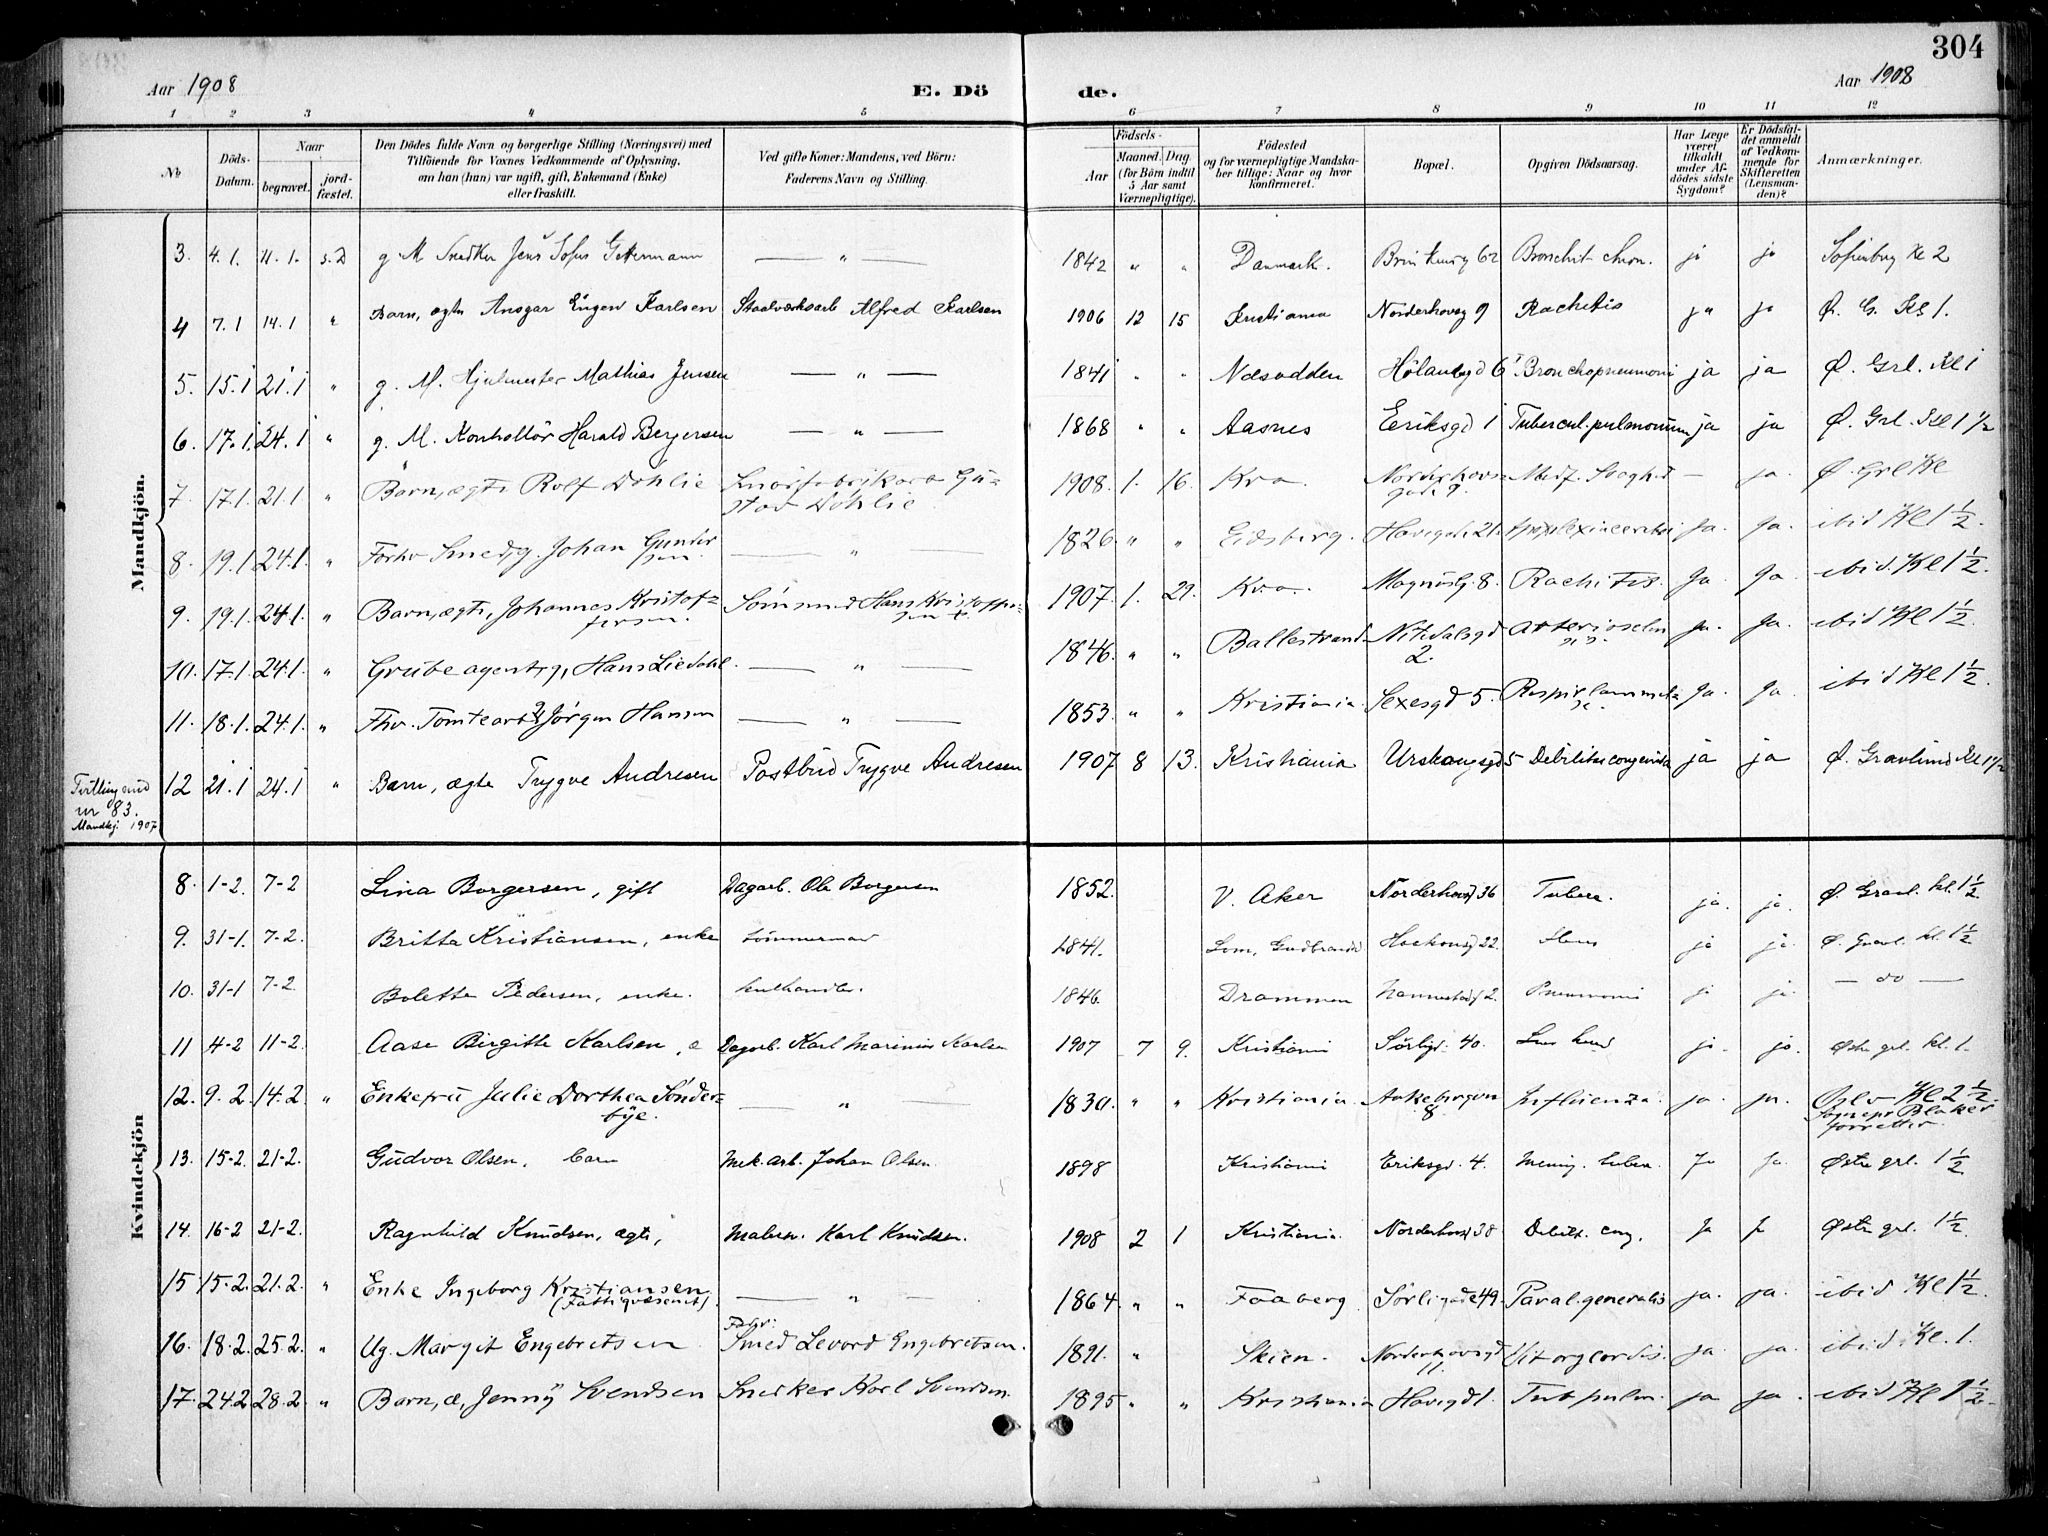 304
Aar 1908 E. Dö de. Aar 1908
1 2 3 4 5 6 7 8 9 10 11 12
No Döds-Datum. Naar begravet. jord-fæstet. Den Dödes fulde Navn og borgerlige Stilling (Næringsvei) med Tilföiende for Voxnes Vedkommende af Oplysning, om han (hun) var ugift, gift, Enkemand (Enke) eller fraskilt. Ved gifte Koner: Mandens, ved Börn: Faderens Navn og Stilling. Födsels- Aar Maaned. Dag. (for Börn indtil 5 Aar samt Værnepligtige). Födested og for værnepligtige Mandska-ber tillige: Naar og hvor konfirmeret. Bopæl. Opgiven Dödsaarsag. Har Læge været tilkaldt under Af-dödes sidste Sygdom? Er Dödsfal-det anmeldt af Vedkom-mende for Skifteretten (Lensman-den)? Anmærkninger.
Mandkjön.
3. 4.1. 11.1. s.D g. M Snedker Jens Sofus — " — 1842 " " Danmark. 62 Bronchit chron. ja ja Sofienberg Kl 2
4 7.1 14.1 " Barn, ægte Ansgar Eugen Karlsen Staalværksarb Alfred Karlsen 1906 12 15 Kristiania Norderhovsg 9 Rachitis ja ja Ø. G. Kl 1.
5. 15.1 21.1 " g. M. Hjulmester Mathias Jensen — " — 1841 " " Næsodden Hölandsgd 6 Bronchopneumoni ja ja Ø. Grl. Kl 1
6. 17.1. 24.1 " g. M. Kontrollör Harald Bergersen — " — 1868 " " Aasnes Eeriksgd 1 Tubercul. pulmonum ja ja Ø. Grl. Kl 1 1/2
7. 17.1. 21.1 " Barn, ægte Rolf Döhlie Gu-stav Döhlie. 1908. 1. 16. Kra. Norderhovs-gade 9. Medf. Svaghed — ja. Ø. Grl Kl
8. 19.1 24.1. " Forhv Smed, g. Johan Gunder sen. — " — 1826. " " Eidsberg. 21. Ja. Ja. ibid Kl 1 1/2.
9. 19.1. 24.1. " Barn, ægte, Johannes Kristof-fersen. Hans Kristoffer-sen 1907. 1. 29. Kra. Magnusg. 8. Rachitis. Ja. Ja. ibid. Kl 1 1/2.
10. 17.1. 24.1. " Grubeagent, g, Hans Liedahl. — " — 1846. " " Ballestrand Nitedalsgd 2. Ja. Ja. ibid Kl 1 1/2.
11. 18.1. 24.1. " Fhv. Tomtearb. Jörgen Hansen — " — 1853. " " Kristiania. Sexesgd 5. Ja. Ja. ibid Kl 1 1/2.
Tvilling med nr 83. Mandkj. 1907
12 21.1 24.1 " Barn, ægte Trygve Andresen Postbud Trygve Andresen 1907 8 13. Kristiania Urskougsgd 5 Debilitas congenita ja ja Ø. Gravlund Kl 1 1/2
Kvindekjön
8. 1-2. 7-2 Lina Borgersen, gift Dagarb. Ole Borgersen 1852. V. Aker Norderhovsg 36 Tuberc. ja. ja. Ø. Gravl. kl. 1 1/2.
9. 31-1. 7-2. Britta Kristiansen, enke tömmermand 1841. Lom, Gudbrandsd Haakonsgd 22. ja ja. Ø. Gravl. kl. 1 1/2
10. 31-1 7-2. Bolette Pedersen, enke. kulhandler. 1846. Drammen 2. Pneumoni ja ja. — do —
11 4-2 11-2. Aase Birgitte Karlsen, æ Dagarb. Karl Marinius Karlsen 1907 7 9. Kristiania Sörligd. 40. ja. ja. Østre grl. kl. 1.
12. 9.2. 14.2. " Enkefru Julie Dorthea Sönder-bye. — " — 1830. " " Kristiania. Ankebergven 8. Influenza. ja. ja. Oslo Kl 2 1/2. Sognepr Blaker forretter.
13. 15-2. 21-2. Gudvor Olsen, barn Mek. arb. Johan Olsen. 1898 Kristiania Eriksgd. 4. Mening. tuberc. Ja Ja. Østre grl. 1 1/2.
14. 16-2 21-2. Ragnhild Knudsen, ægte, Malersv. Karl Knudsen. 1908 2 1 Kristiania. Norderhovsg 38 Debilit. cong. Ja Ja Østre grl. 1 1/2.
15 15-2. 21.2. " Enke Ingeborg Kristiansen (Fattigvæsenet). — " — 1864. " " Faaberg Sörligade 49. Paral. generalis ja. ja. ibid Kl 1 1/2.
16. 18.2. 25.2. " Ug. Margit Engebretsen Fader: Smed Levord Engebretsen. 1891. " Skien. Norderhovsgd 11 Vit org cordis. ja. ja. ibid. Kl. 1.
17. 24.2 28.2 " Barn, æ, Jenny Svendsen Snedker Karl Svendsen. 1895 " " Kristiania Havegd 1. Tub pulm. ja ja. ibid Kl 1 1/2.